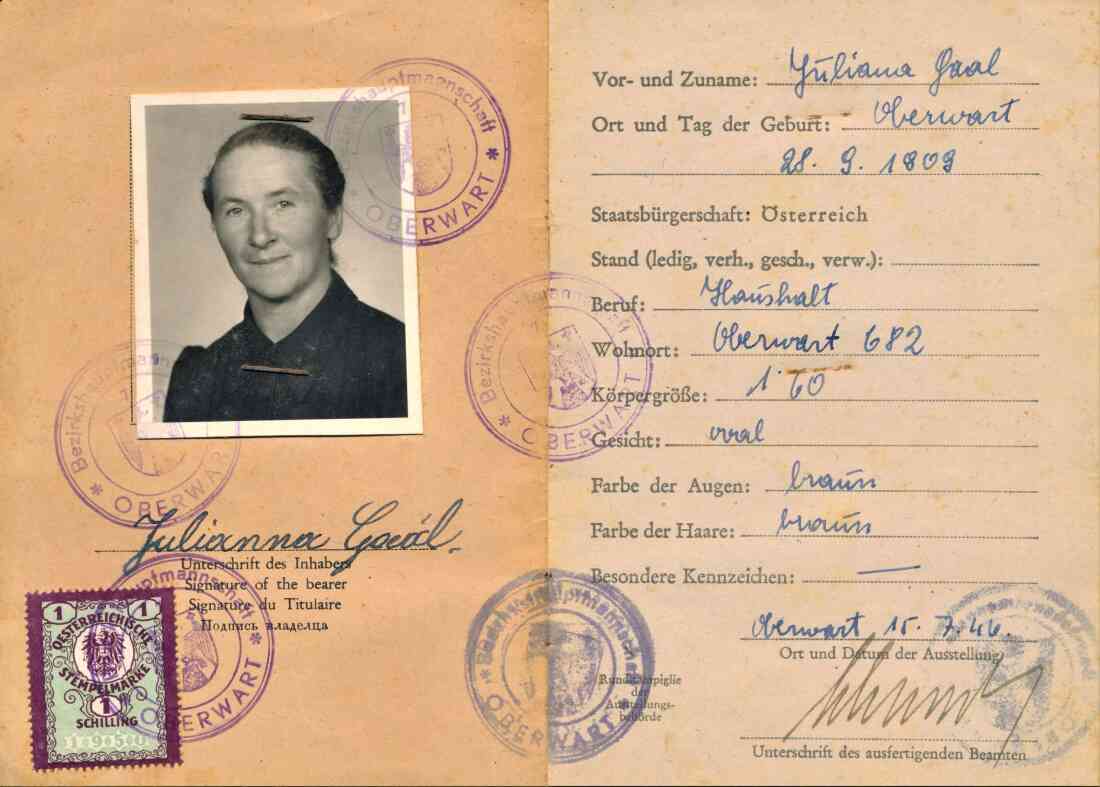 Bezirkshauptmannschaft
* OBERWART *
Bezirkshauptmannschaft
* OBERWART
Julianna Gaál.
Unterschrift des Inhabers
Signature of the bearer
Signature du Titulaire
Подпись владельца
1 1
ÖSTERREICHISCHE
STEMPELMARKE
1
SCHILLING
hauptmannschaft
OBERWART *
Vor- und Zuname: Juliana Gaal
Ort und Tag der Geburt: Oberwart
28. 9. 1909
Staatsbürgerschaft: Österreich
Stand (ledig, verh., gesch., verw.):
Beruf: Haushalt
Wohnort: Oberwart 682
Körpergröße: 1 60
Gesicht: oval
Farbe der Augen: braun
Farbe der Haare: braun
Besondere Kennzeichen: —
Bezirkshauptmannschaft
* OBERWART *
Oberwart 15. 7. 46.
Ort und Datum der Ausstellung
Rundstampiglie
der
Ausstellungs-
behörde
Bezirkshauptmannschaft
* OBERWART *
Unterschrift des ausfertigenden Beamten